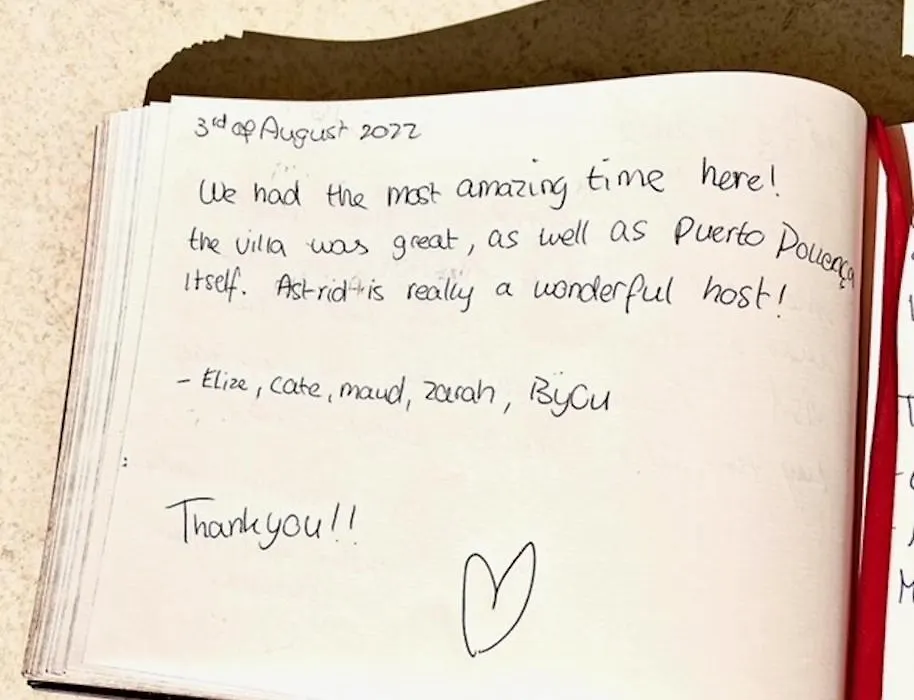 3rd of August 2022
We had the most amazing time here!
the villa was great, as well as Puerto
itself. Astrid is really a wonderful host!
- Elize, cate, maud, zarah,
Thankyou!!